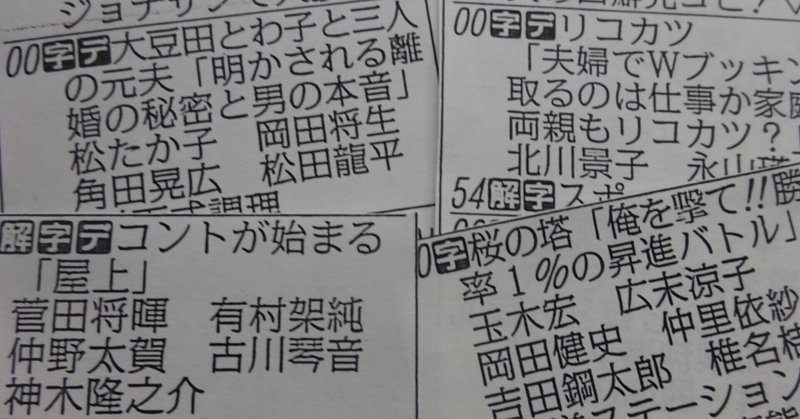 00字デ大豆田とわ子と三人
の元夫「明かされる離
婚の秘密と男の本音」
松たか子 岡田将生
角田晃広 松田龍平
00字デリコカツ
「夫婦でWブッキン
取るのは仕事か家庭
両親もリコカツ?
北川景子 永山瑛
54解字スポ
解字デコントが始まる
「屋上」
菅田将暉 有村架純
仲野太賀 古川琴音
神木隆之介
0字桜の塔「俺を撃て!!勝
率1%の昇進バトル」
玉木宏 広末涼子
岡田健史 仲里依紗
吉田鋼太郎 椎名桔
ステーション